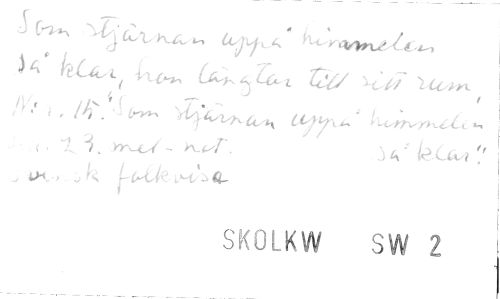 Som stjärnan uppå himmelen
så klar, hon längtar till sitt rum,
Nr. 15. "Som stjärnan uppå himmelen
23. mel-not. så klar".
Svensk folkvisa
SKOLKW SW 2